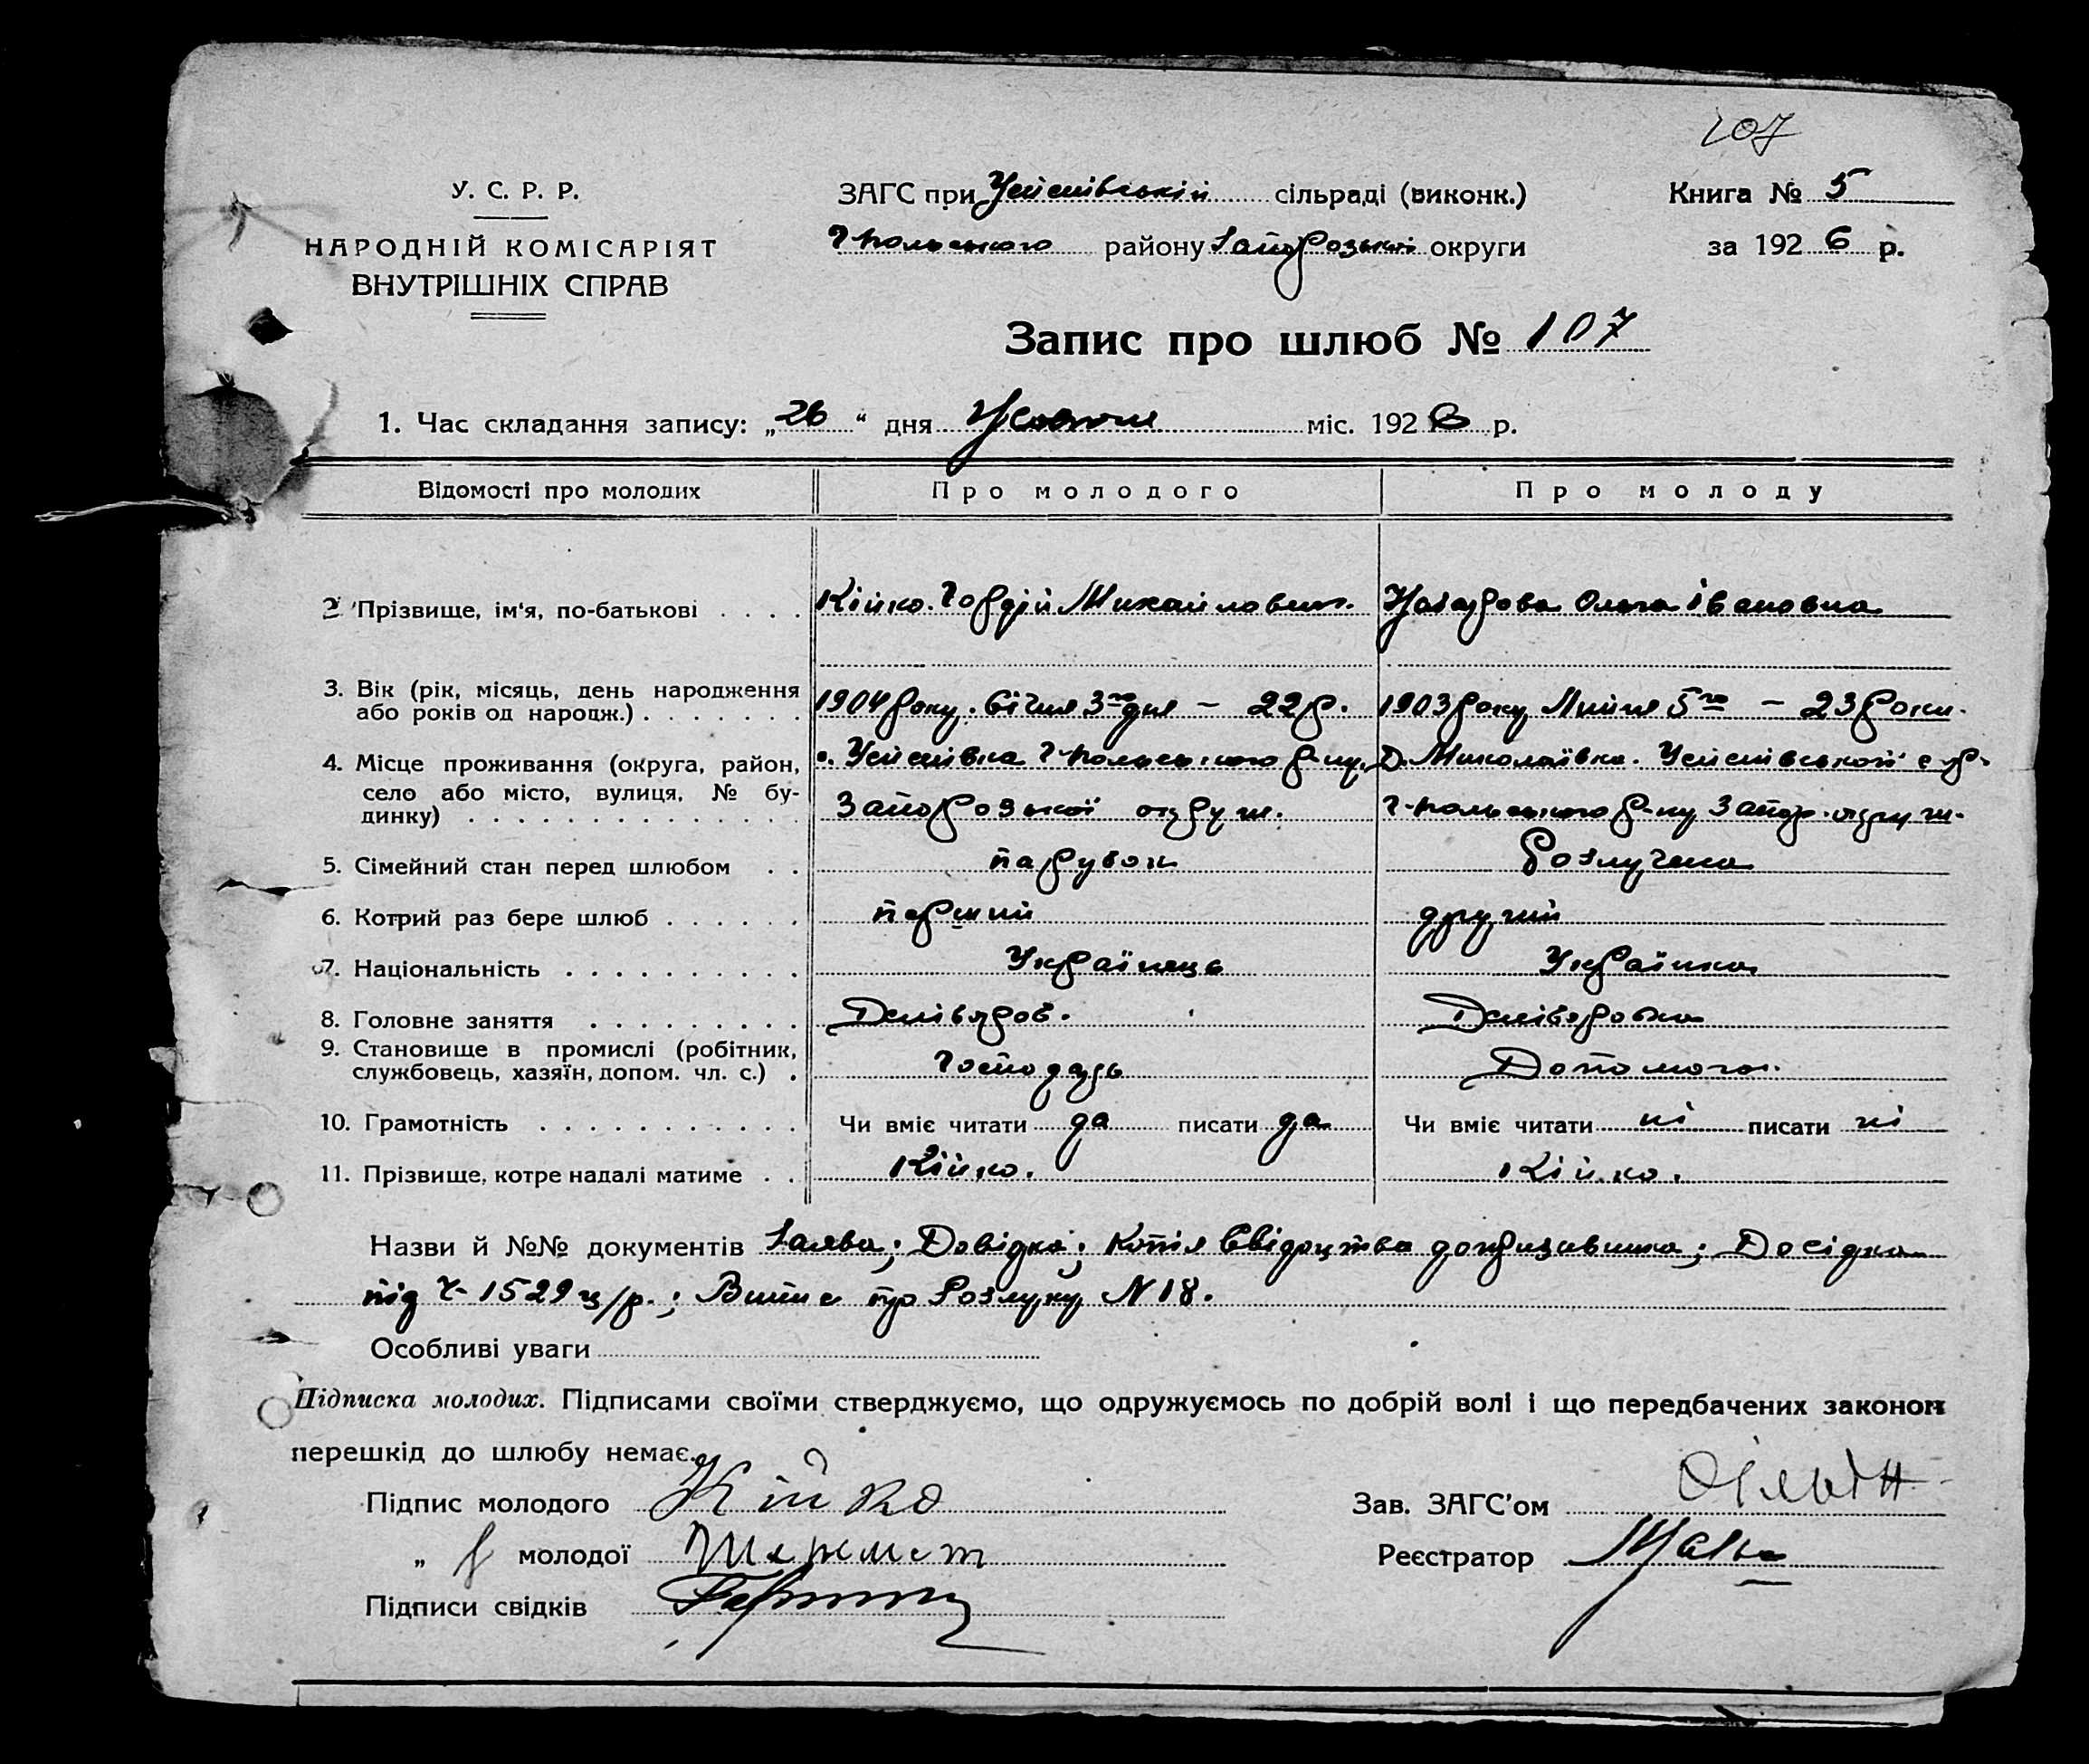 107
У. С. Р. Р.
НАРОДНІЙ КОМІСАРІЯТ
ВНУТРІШНІХ СПРАВ
ЗАГС при Успенівській сільраді (виконк.)
Г-Польського району Запорозької округи
Книга № 5
за 1926 р.
Запис про шлюб № 107
1. Час складання запису: „26“ дня Жовтня міс. 1926 р.
Відомості про молодих
Про молодого
Про молоду
2. Прізвище, ім'я, по-батькові
Кійко Гордій Михайлович.
Назарова Ольга Івановна
3. Вік (рік, місяць, день народження або років од народж.)
1904 року. Січня 3го дня – 22 р.
1903 року Липня 5го – 23 роки.
4. Місце проживання (округа, район, село або місто, вулиця, № будинку)
с. Успенівка Г-Польського р-ну,
Запорозької округи.
Д. Миколаївка. Успенівської с/р.
Г-Польського р-ну Запор. округи.
5. Сімейний стан перед шлюбом
парубок
Розлучена
6. Котрий раз бере шлюб
перший
другий
7. Національність
Українець
Українка
8. Головне заняття
Хлібороб.
Хліборобка
9. Становище в промислі (робітник, службовець, хазяїн, допом. чл. с.)
Господарь
Допомога.
10. Грамотність
Чи вміє читати да писати да
Чи вміє читати ні писати ні
11. Прізвище, котре надалі матиме
Кійко.
Кійко.
Назви й №№ документів Заява; Довідка; Копія Свідоцтва допризивника; Довідка
під Ч- 1529 ц/р.; Випис про Розлуку N 18.
Особливі уваги
Підписка молодих. Підписами своїми стверджуємо, що одружуємось по добрій волі і що передбачених законом
перешкід до шлюбу немає.
Підпис молодого Кійко
„ молодої Шеремет
Підписи свідків
Зав. ЗАГС'ом
Реєстратор